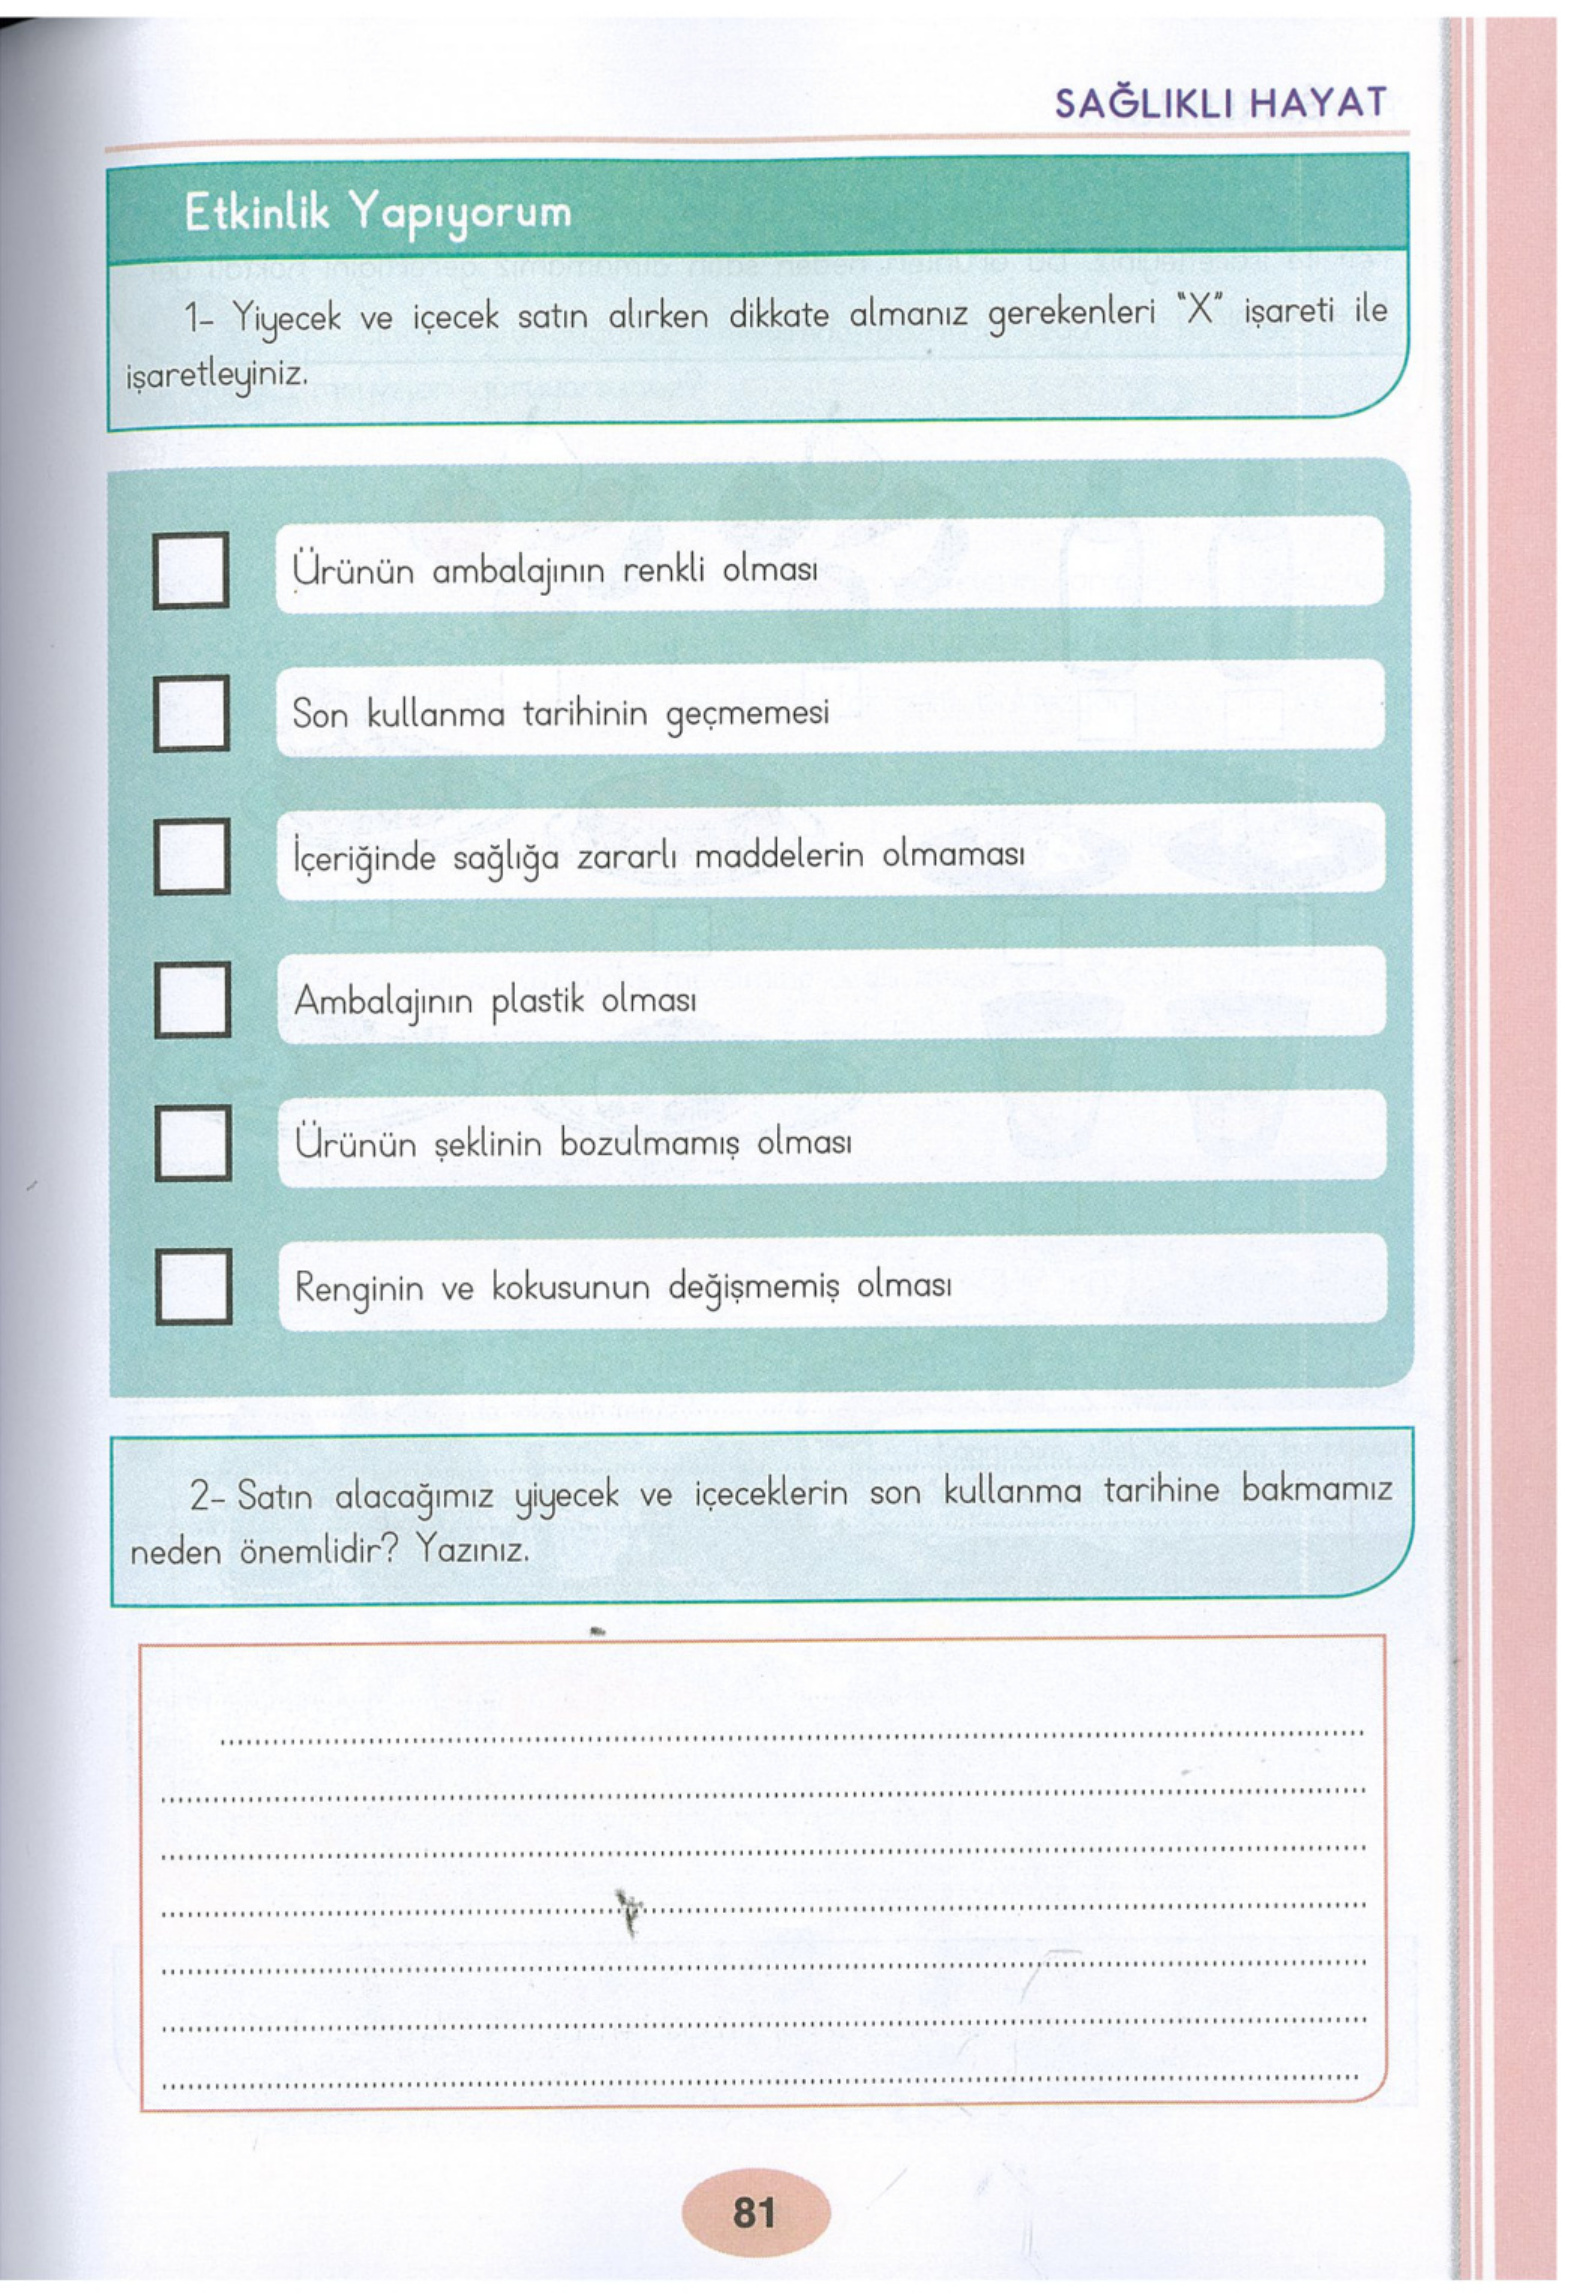 SAĞLIKLI HAYAT
Etkinlik Yapıyorum
1- Yiyecek ve içecek satın alırken dikkate almanız gerekenleri "X" işareti ile
işaretleyiniz.
Ürünün ambalajının renkli olması
Son kullanma tarihinin geçmemesi
İçeriğinde sağlığa zararlı maddelerin olmaması
Ambalajının plastik olması
Ürünün şeklinin bozulmamış olması
Renginin ve kokusunun değişmemiş olması
2- Satın alacağımız yiyecek ve içeceklerin son kullanma tarihine bakmamız
neden önemlidir? Yazınız.
81